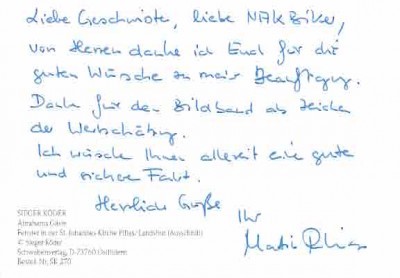 Liebe Geschwister, liebe NAK Biker,
von Herzen danke ich Euch für die
guten Wünsche zu meiner Beauftragung.
Dank für den Bildband als Zeichen
der Wertschätzung.
Ich wünsche Ihnen allezeit eine gute
und sichere Fahrt.
Herzliche Grüße
Ihr
SIEGER KÖDER
Abrahams Gäste
Fenster in der St. Johannes Kirche Piflas/ Landshut (Ausschnitt)
© Sieger Köder
Schwabenverlag, D-73760 Ostfildern
Bestell-Nr. SK 270